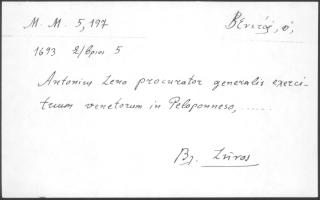 M. M. 5, 197
Βενετός, ὁ,
1693 2/βριος 5
Antonius Zeno procurator generalis exerci-
tuum venetorum in Peloponneso, ......
Βλ. Ζῆνος